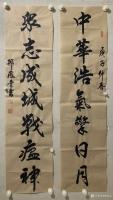 中華浩氣擎日月
庚子仲春
眾志成城戰瘟神